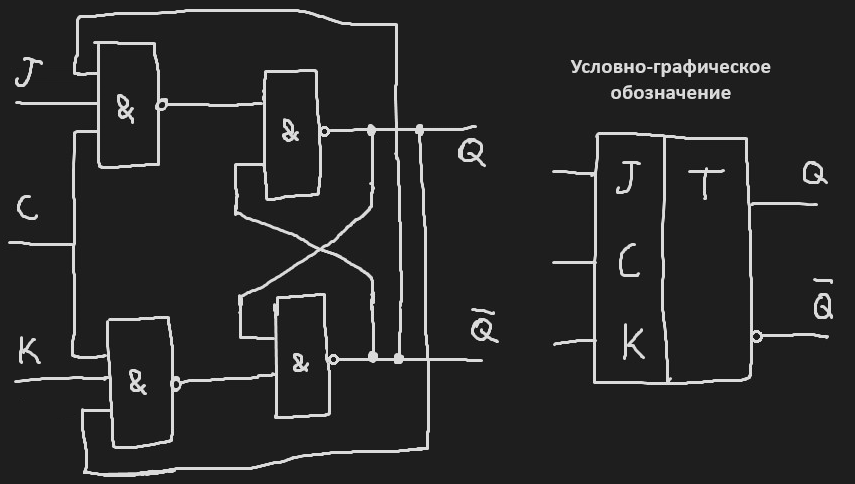 J
&
&
Q
C
K
&
&
Q̅
Условно-графическое
обозначение
J
T
Q
C
K
Q̅